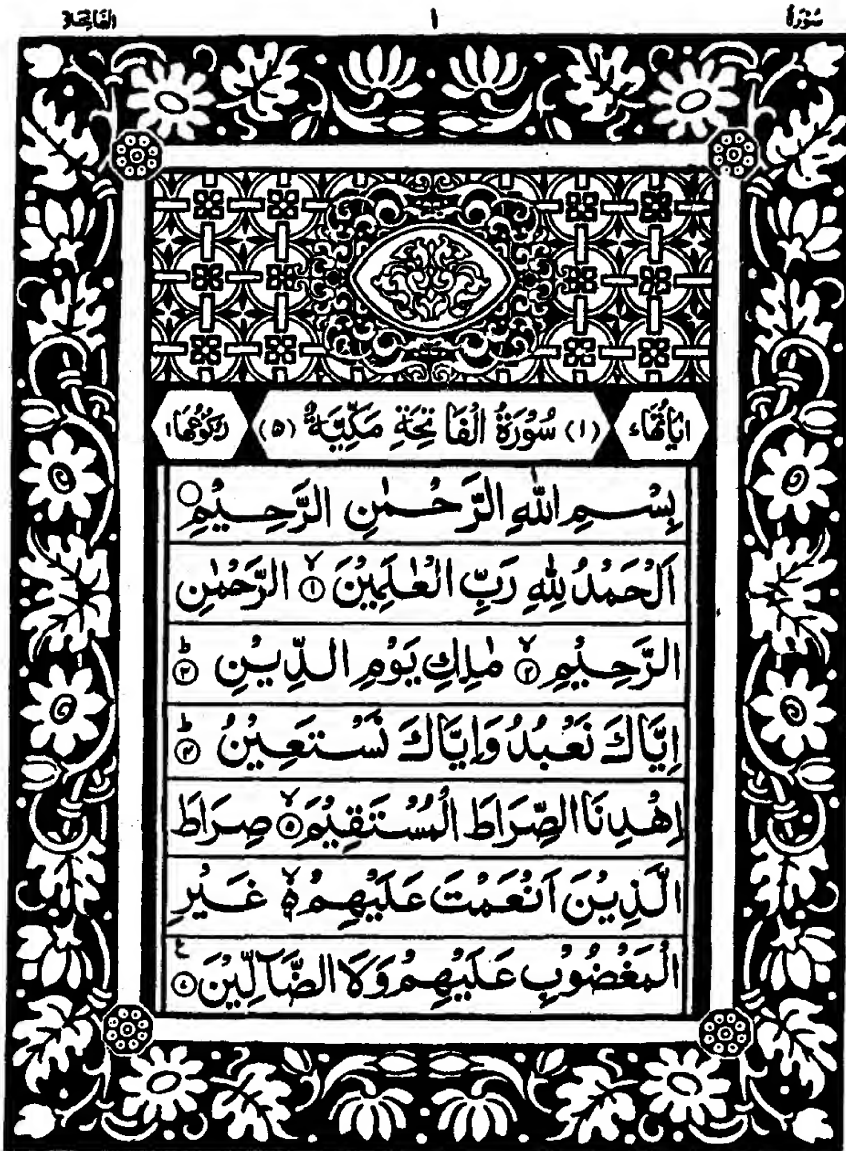 سُوْرَةُ ١ الفَاتِحَة
اٰيَاتُهَا، (١) سُوْرَةُ الْفَاتِحَةِ مَكِّيَّةٌ (٥) رُكُوْعُهَا١
بِسْمِ اللّٰهِ الرَّحْمٰنِ الرَّحِيْمِ ۝
اَلْحَمْدُ لِلّٰهِ رَبِّ الْعٰلَمِيْنَ ۙ﴿١﴾ الرَّحْمٰنِ
الرَّحِيْمِ ۙ﴿٢﴾ مٰلِكِ يَوْمِ الدِّيْنِ ؕ﴿٣﴾
اِيَّاكَ نَعْبُدُ وَاِيَّاكَ نَسْتَعِيْنُ ؕ﴿٤﴾
اِهْدِنَا الصِّرَاطَ الْمُسْتَقِيْمَ ۙ﴿٥﴾ صِرَاطَ
الَّذِيْنَ اَنْعَمْتَ عَلَيْهِمْ ۙ۬ۦ غَيْرِ
الْمَغْضُوْبِ عَلَيْهِمْ وَلَا الضَّآلِّيْنَ ﴿٧﴾ع